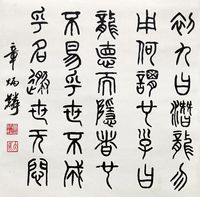 初九曰潛龍勿
用何謂也子曰
龍德而隱者也
不易乎世不成
乎名遯世无悶
章炳麟